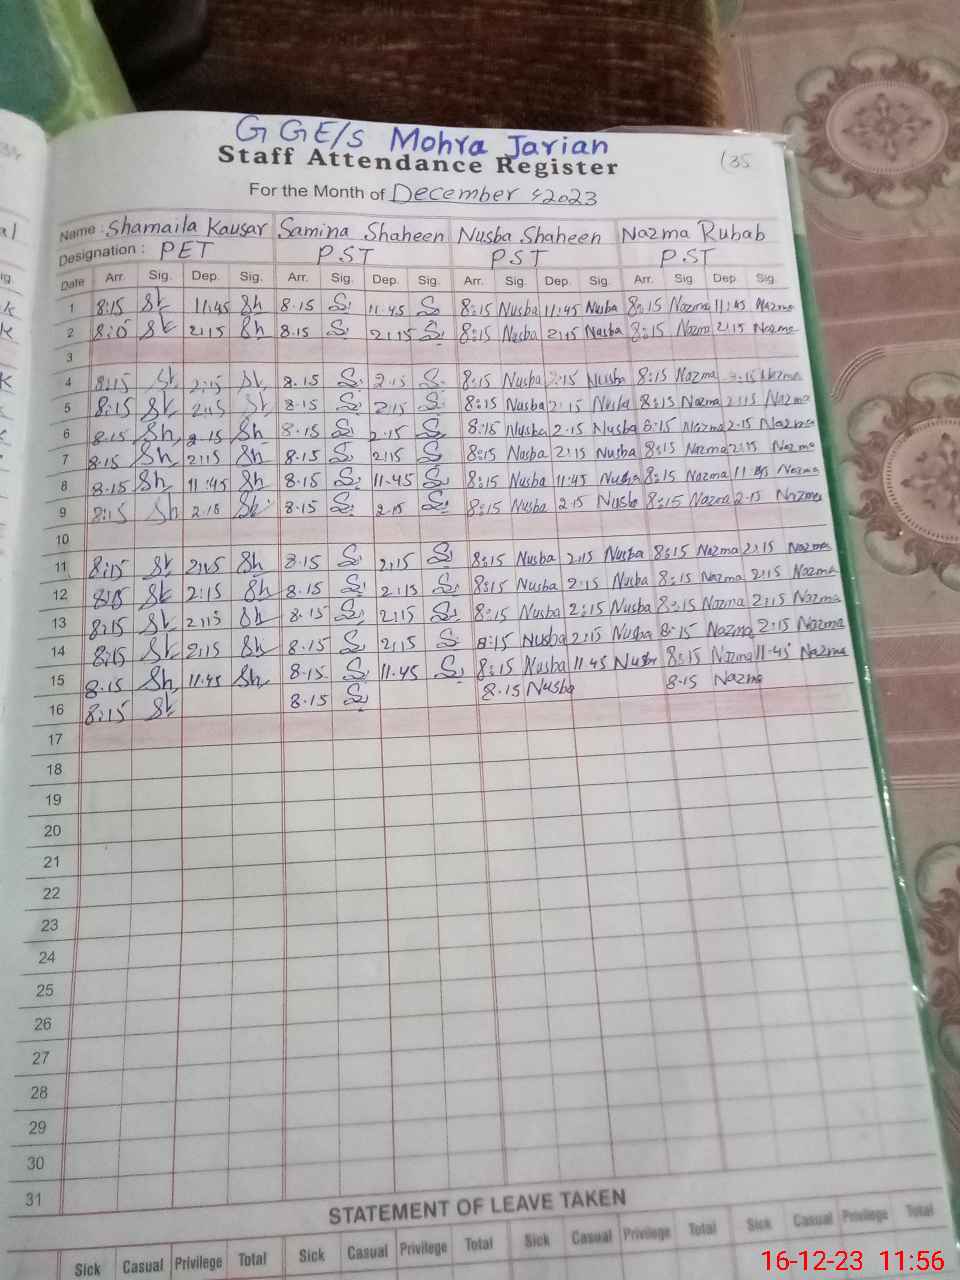 G G E/S Mohra Jarian
Staff Attendance Register
(35
For the Month of December, 2023
Name : Shamaila Kausar Samina Shaheen Nusba Shaheen Nazma Rubab
Designation : PET PST PST PST
Date Arr. Sig. Dep. Sig. Arr. Sig. Dep. Sig. Arr. Sig. Dep. Sig. Arr. Sig Dep. Sig.
1 8:15 Sh 11:45 Sh 8.15 S 11.45 S 8:15 Nusba 11:45 Nusba 8:15 Nazma 11:45 Nazma
2 Sh 2:15 Sh 8.15 S 2:15 S 8:15 Nusba 2:15 Nusba 8:15 Nazma 2:15 Nazma
3
4 8:15 Sh 2:15 Sh 8.15 S 2.15 S 8:15 Nusba 2:15 Nusba 8:15 Nazma 2:15 Nazma
5 8:15 Sh 2:15 Sh 8.15 S 2:15 S 8:15 Nusba 2:15 Nusba 8:15 Nazma 2:15 Nazma
6 8.15 Sh 2.15 Sh 8.15 S 2.15 S 8:15 Nusba 2.15 Nusba 8:15 Nazma 2.15 Nazma
7 8.15 Sh 2:15 Sh 8.15 S 2:15 S 8:15 Nusba 2:15 Nusba 8:15 Nazma 2:15 Nazma
8 8.15 Sh 11:45 Sh 8.15 S 11.45 S 8:15 Nusba 11:45 Nusba 8:15 Nazma 11:45 Nazma
9 8:15 Sh 2.15 Sh 8.15 S 2.15 S 8:15 Nusba 2.15 Nusba 8:15 Nazma 2.15 Nazma
10
11 8:15 Sh 2:15 Sh 8.15 S 2:15 S 8:15 Nusba 2:15 Nusba 8:15 Nazma 2:15 Nazma
12 8:15 Sh 2:15 Sh 8.15 S 2:15 S 8:15 Nusba 2:15 Nusba 8:15 Nazma 2:15 Nazma
13 8:15 Sh 2:15 Sh 8.15 S 2:15 S 8:15 Nusba 2:15 Nusba 8:15 Nazma 2:15 Nazma
14 8:15 Sh 2:15 Sh 8.15 S 2:15 S 8:15 Nusba 2:15 Nusba 8:15 Nazma 2:15 Nazma
15 8.15 Sh 11.45 Sh 8.15 S 11.45 S 8:15 Nusba 11.45 Nusba 8:15 Nazma 11.45 Nazma
16 8:15 Sh 8.15 S 8.15 Nusba 8.15 Nazma
17
18
19
20
21
22
23
24
25
26
27
28
29
30
31
STATEMENT OF LEAVE TAKEN
Sick Casual Privilege Total Sick Casual Privilege Total Sick Casual Privilege Total Sick Casual Privilege Total
16-12-23 11:56